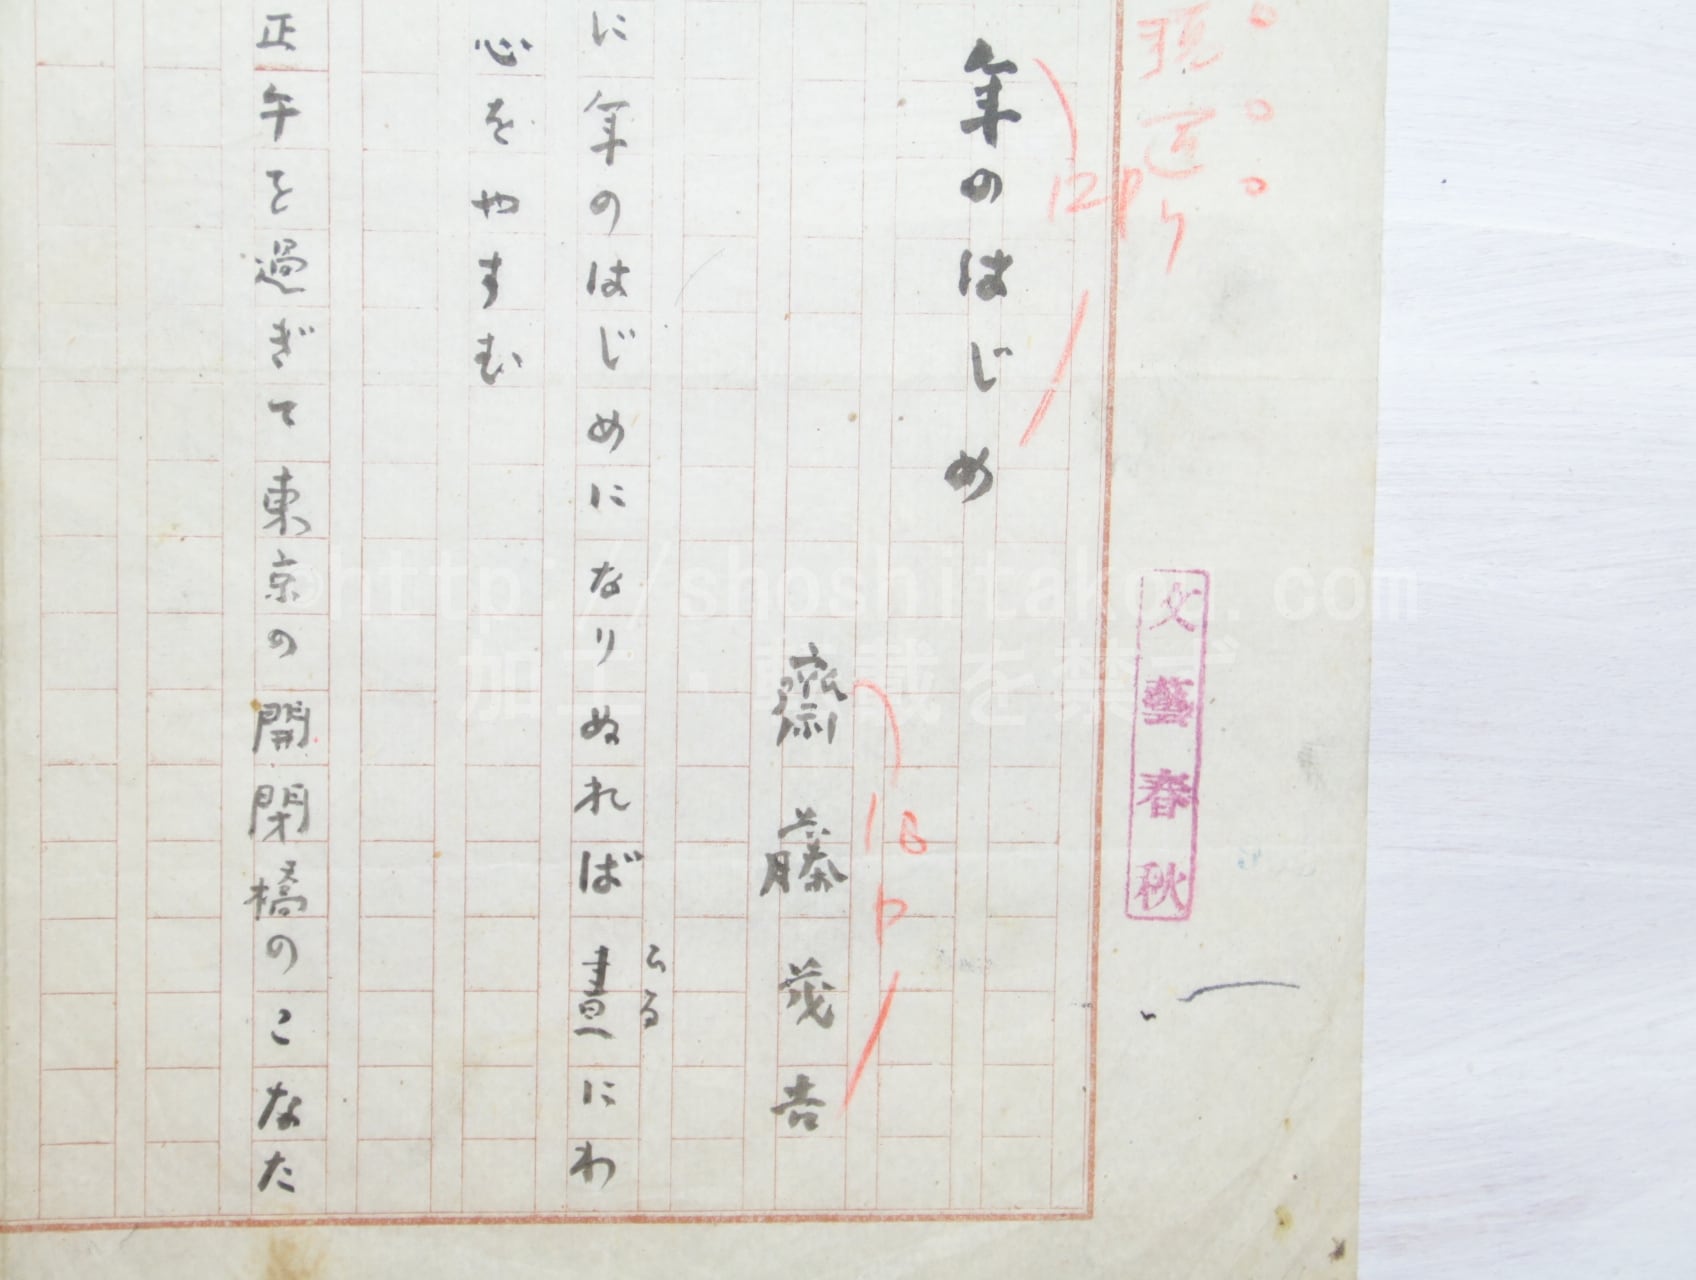 年のはじめ
12P
齋藤茂吉
に年のはじめになりぬれば晝にわ
心をやすむ
正午を過ぎて東京の開閉橋のこなた
文藝春秋
©http://shoshitakou.com
加工・転載を禁ず